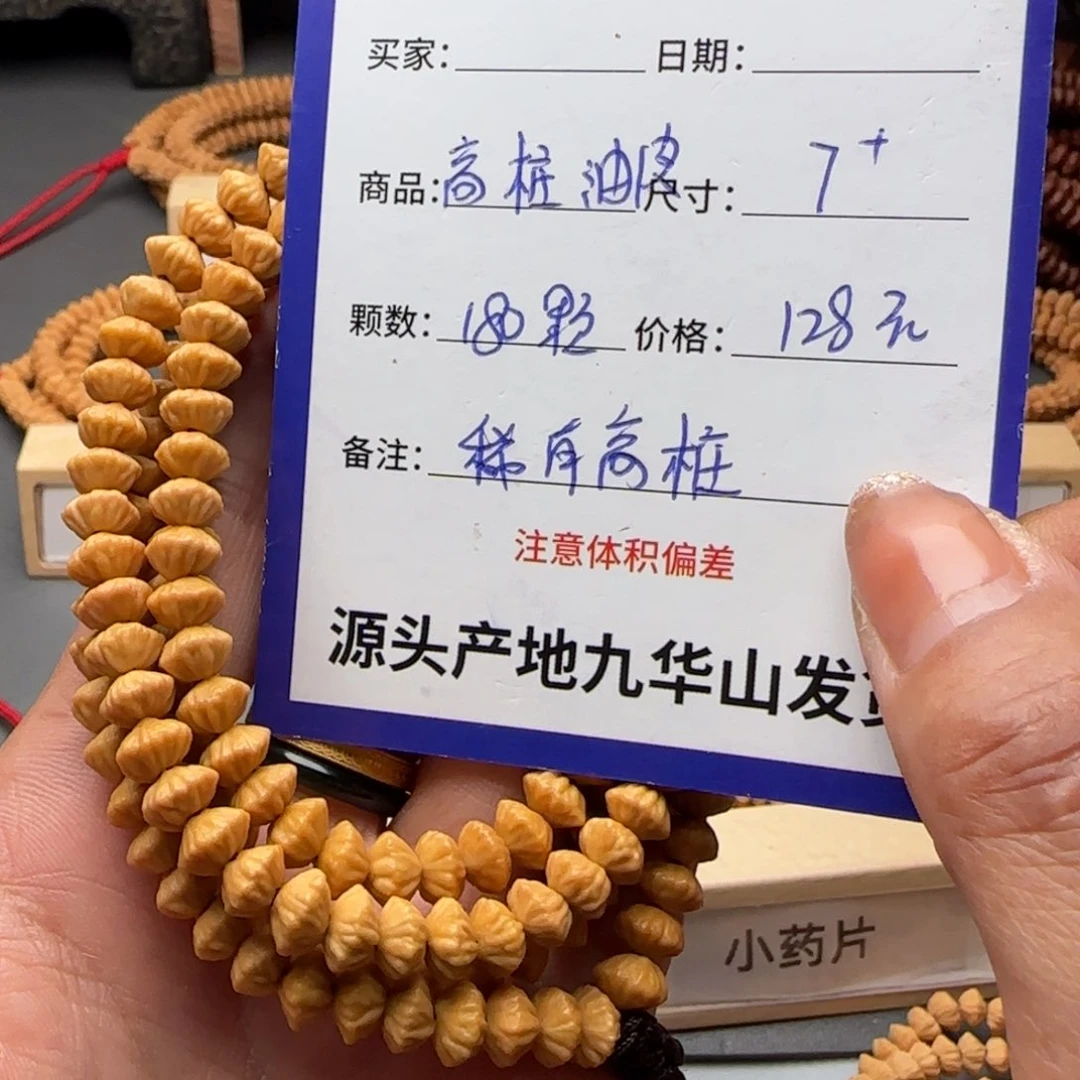 买家： 日期：
商品：高桩油 尺寸：7+
颗数：180颗 价格：128元
备注：稀有高桩
注意体积偏差
源头产地九华山发
小药片